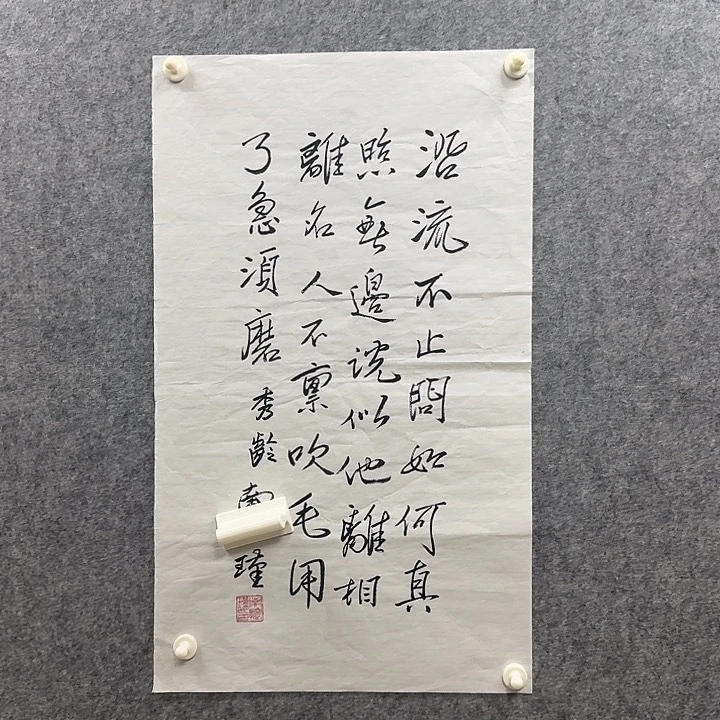 沿流不止問如何真
照無邊説似他離相
離名人不禀吹毛用
了急須磨 秀齡 南 瑾